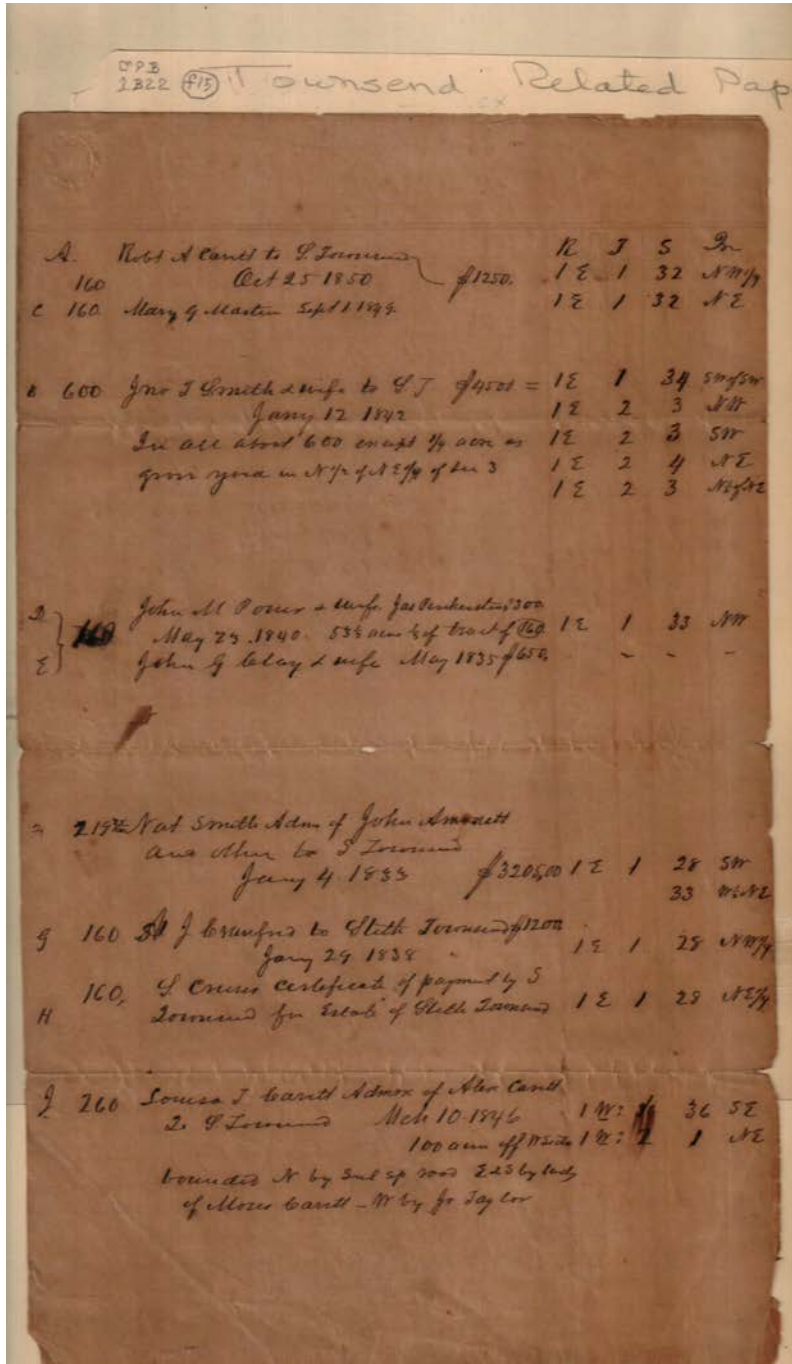 CPB
2B22 f15 Townsend Related Pap
R T S
A. Robt A Cavett to S. Townsend
160 Oct 25 1850 $1250. 1 E 1 32 NW 1/4
C 160 Mary G Mastin Sept 1 1 E 1 32 NE
600 Jno T Smith & wife to S T = 1 E 1 34 SW of SW
Jany 12 1842 1 E 2 3 NW
In all about 600 except 1/4 acre as 1 E 2 3 SW
yard in N 1/2 of NE 1/4 of Sec 3 1 E 2 4 NE
1 E 2 3 of NE
D John M & wife 300
160 May 23 1840. of tract of 160 1 E 1 33 NW
E John G Clay & wife May 1835 $650. - - -
Nat Smith Adm of John
and other to S Townsend
Jany 4 1833 $3205,00 1 E 1 28 SW
33 NE
G 160 J Crawford to Stith Townsend $1200
Jany 29 1838 1 E 1 28 NW 1/4
160, S Cruse certificate of payment by S
H Townsend for Estate of Stith Townsend 1 E 1 28 NE 1/4
J 260 Louisa T Cavett Admox of Alex Cavett
To S Townsend Mch 10 1846 1 W: 36 SE
100 acres off W side 1 W: 1 NE
bounded N by road E & S by
of Moses Cavett - W by Taylor